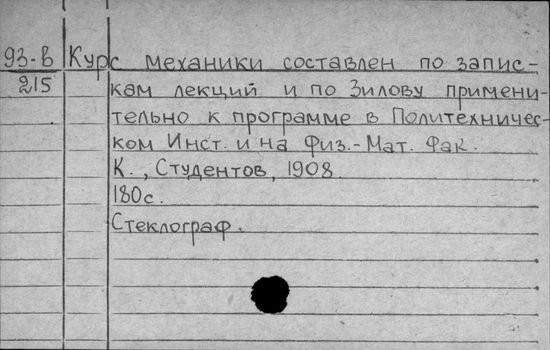 93-В Курс механики составлен по запис-
215 кам лекций и по Зилову примени-
тельно к программе в Политехничес-
ком Инст. и на Физ.-Мат. Фак.
К., Студентов, 1908.
180с.
Стеклограф.